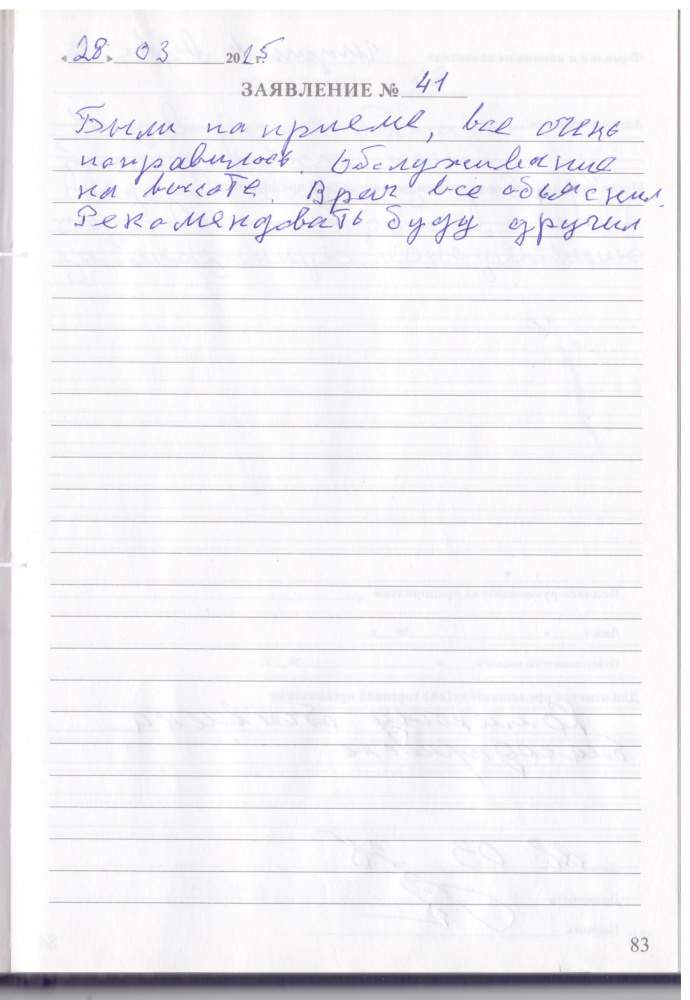 « 28 » 03 2025 г.
ЗАЯВЛЕНИЕ № 41
Были на приеме, все очень
понравилось. Обслуживание
на высоте. Врач все объяснил.
Рекомендовать буду другим
83